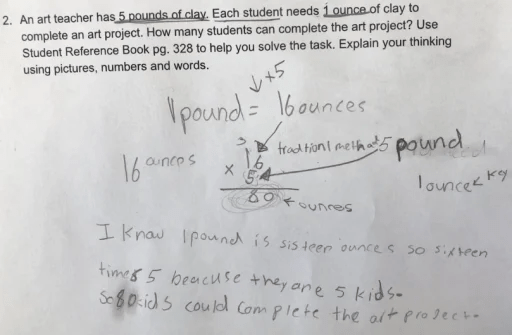 2. An art teacher has 5 pounds of clay. Each student needs 1 ounce of clay to
complete an art project. How many students can complete the art project? Use
Student Reference Book pg. 328 to help you solve the task. Explain your thinking
using pictures, numbers and words.
+5
1 pound = 16 ounces
3
16 ounces
16
tradtionl method
5 pound
x 5
1 ounce
kg
80 ounces
I know 1 pound is sisteen ounces so sixteen
times 5 beacuse they are 5 kids.
So 80 kids could complete the art project.